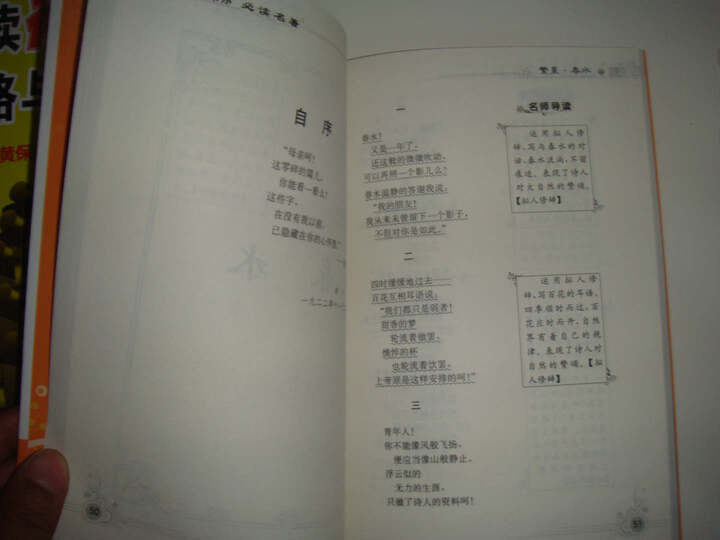 必读名著
自 序
“母亲呵!
这零碎的篇儿,
你能看一看么?
这些字,
在没有我以前,
已隐藏在你的心怀里。”
水
50
繁星·春水
一
春水!
又是一年了,
还这般的微微吹动。
可以再照一个影儿么?
春水温静的答谢我说:
“我的朋友!
我从来未曾留下一个影子,
不但对你是如此。”
名师导读
运用拟人修
辞,写与春水的对
话,春水流淌,不留
痕迹,表现了诗人
对大自然的赞颂。
【拟人修辞】
二
四时缓缓地过去——
百花互相耳语说:
“我们都只是弱者!
甜香的梦
轮流着做罢,
憔悴的杯
也轮流着饮罢,
上帝原是这样安排的呵!”
运用拟人修
辞,写百花的耳语,
四季顺时而过,百
花应时而开,自然
界有着自己的规
律,表现了诗人对
自然的赞颂。【拟
人修辞】
三
青年人!
你不能像风般飞扬,
便应当像山般静止。
浮云似的
无力的生涯,
只做了诗人的资料呵!
51
黄保